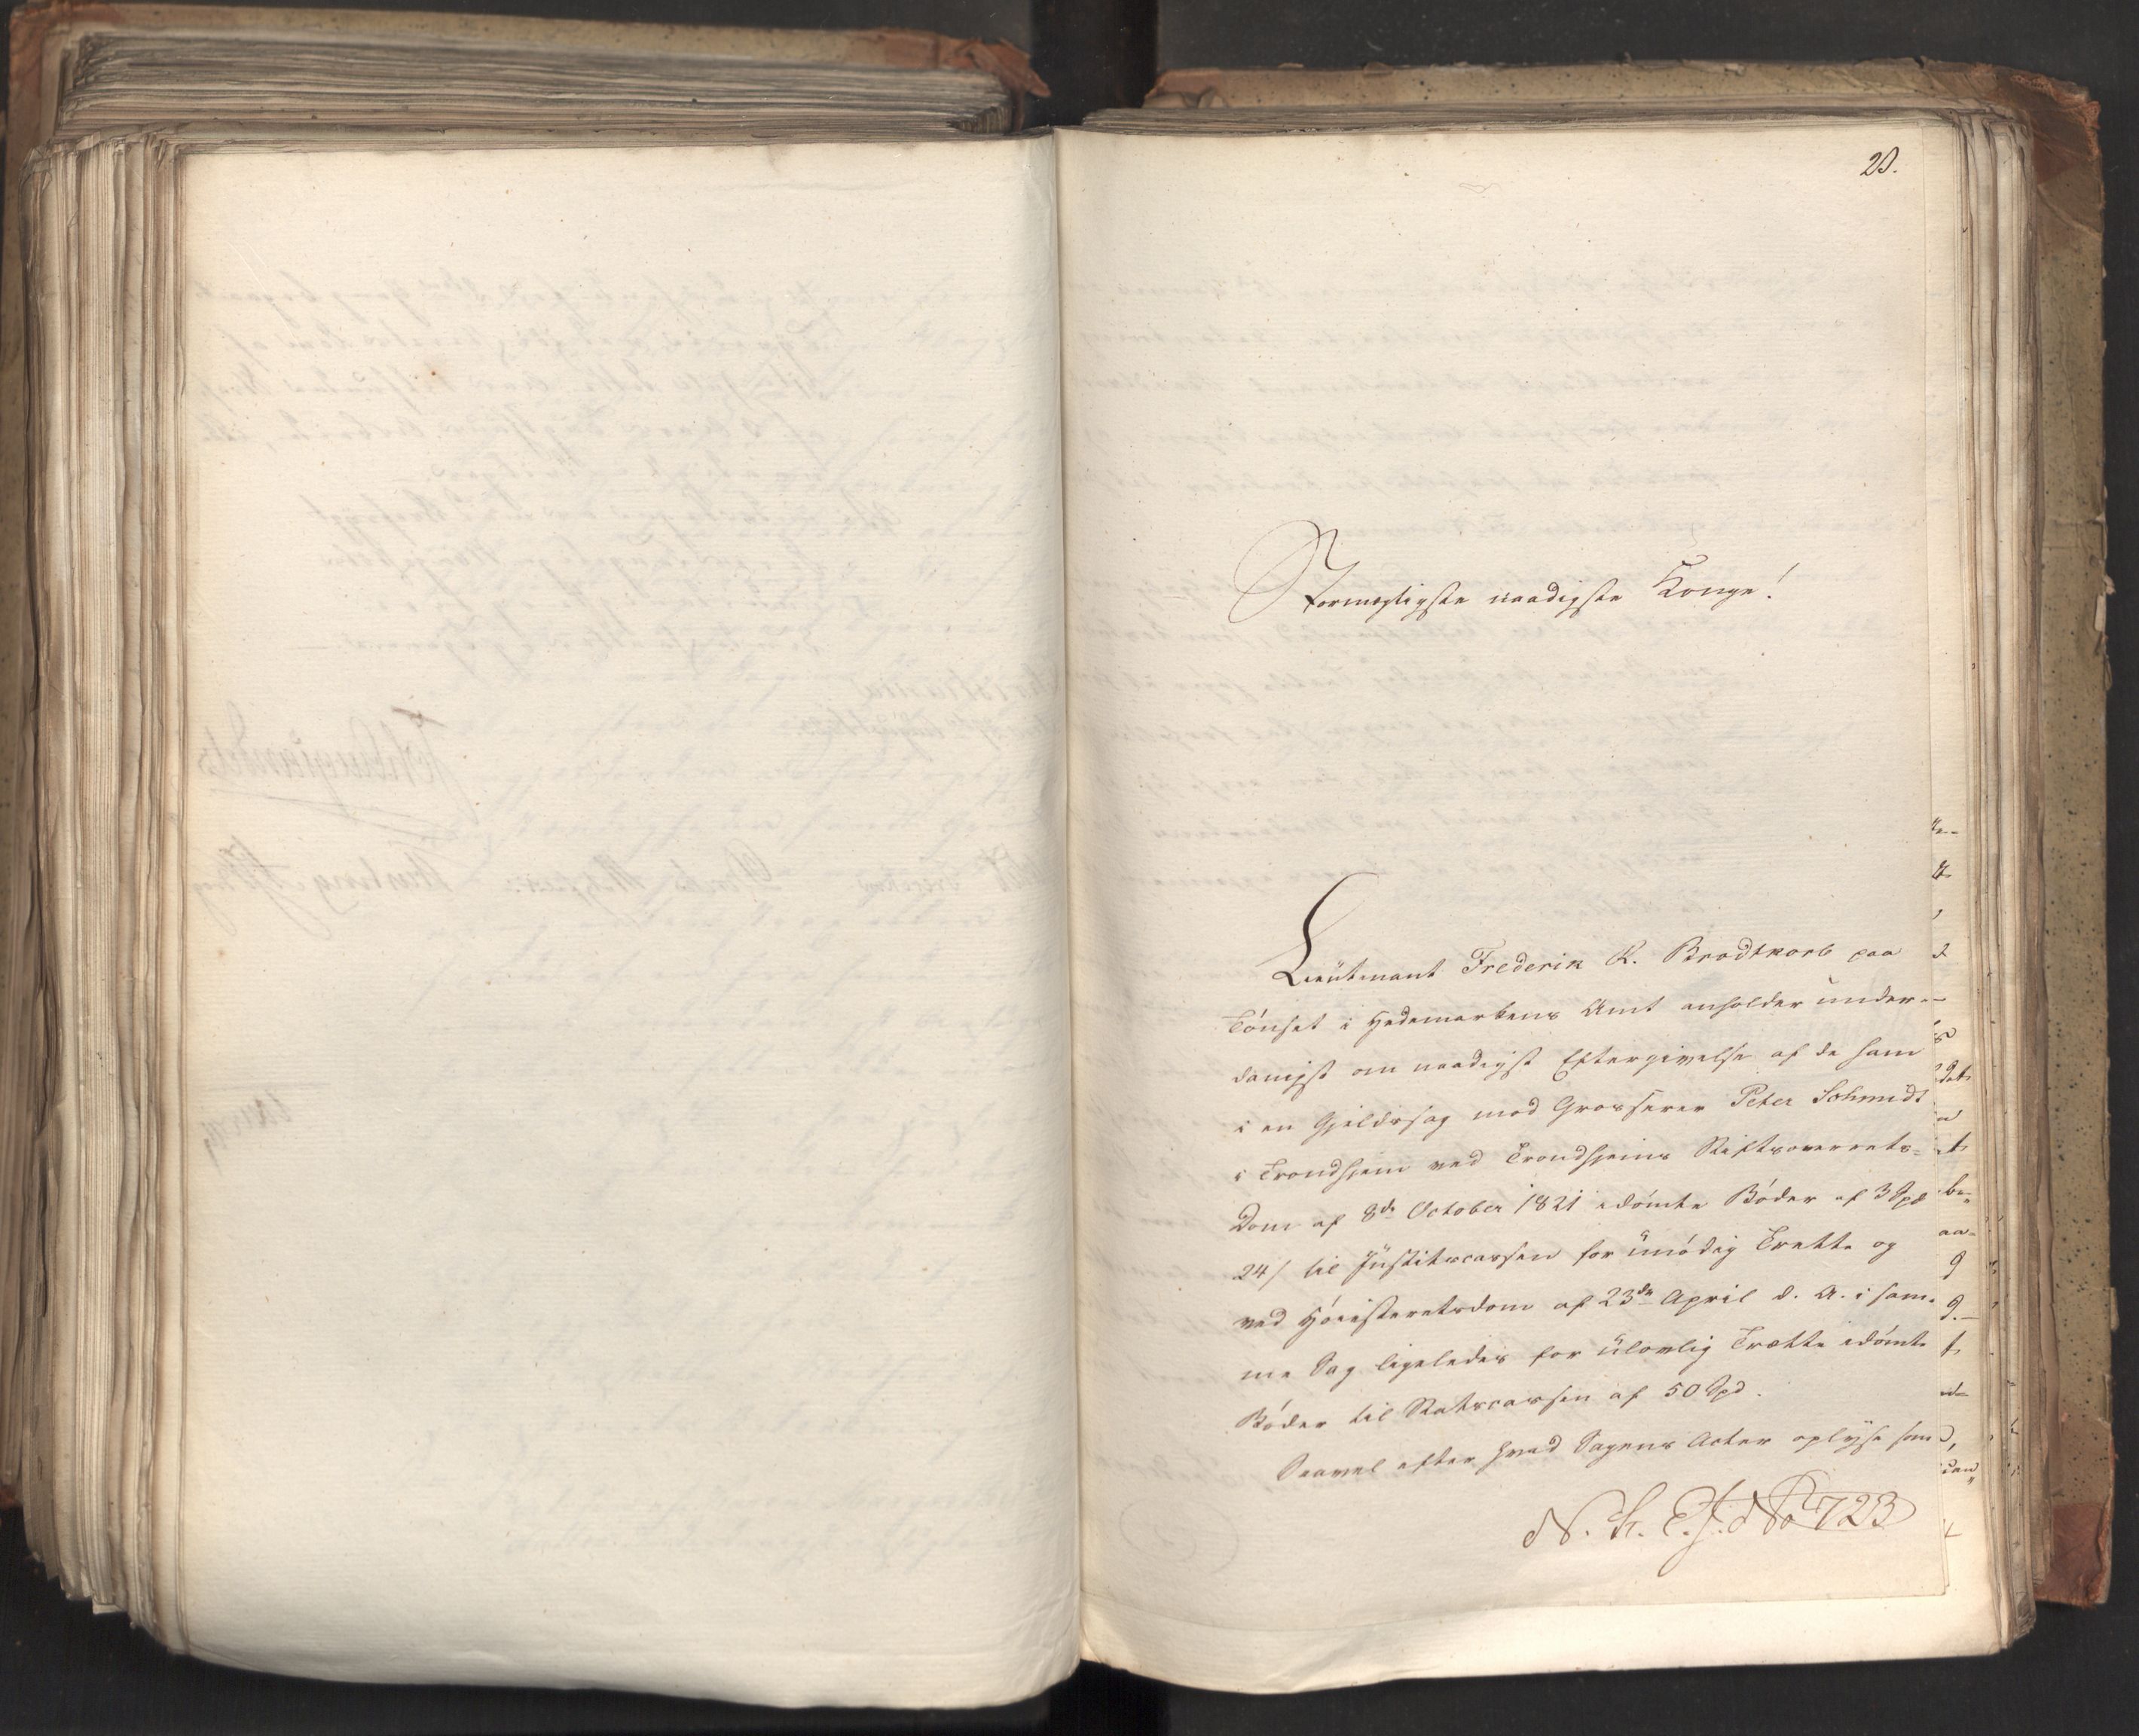 20.
Stormægtigste naadigste Konge!
Lieutenant Frederik R. Brodtkorb paa
Tönset i Hedemarkens Amt anholder under-
danigst om naadigst Eftergivelse af de ham
i en Gjeldssag mod Grosserer Peter Schmidt
i Trondhjem ved Trondhjems Stiftsoverrets-
Dom af 8de October 1821 idömte Böder af 3 Spd
24 / til Justitscassen for unödig Trætte og
ved Höiesteretsdom af 23de April d. A. i sam-
me Sag ligeledes for ulovlig Trætte idömte
Böder til Statscassen af 50 Spd.
Saavel efter hvad Sagens Acter oplyse som
No 723